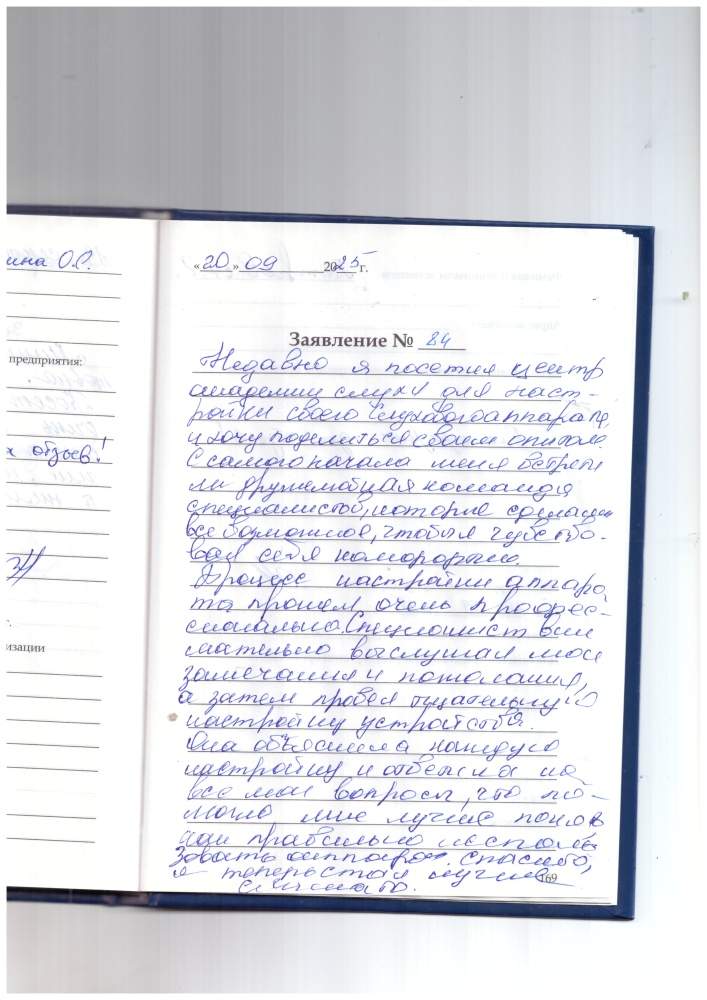 ина О.С.
предприятия:
х отзыв!
г.
изации
«20» 09 2025 г.
Заявление № 84
Недавно я посетил центр
академии слуха для наст-
ройки своего слухового аппарата,
и хочу поделиться своим опытом.
С самого начала меня встрети
ли дружелюбная команда
специалистов, которые сделали
все возможное, чтобы я чувство-
вал себя комфортно.
Процесс настройки аппара,
та прошел очень профес-
сионально. Специалист вни
мательно выслушал мои
замечания и пожелания,
а затем провел тщательную
настройку устройства.
Она объяснила каждую
настройку и ответила на
все мои вопросы, что по-
могло мне лучше понять
как правильно использо
зовать аппарат. Спасибо,
я теперь стал лучше
слышать.
169